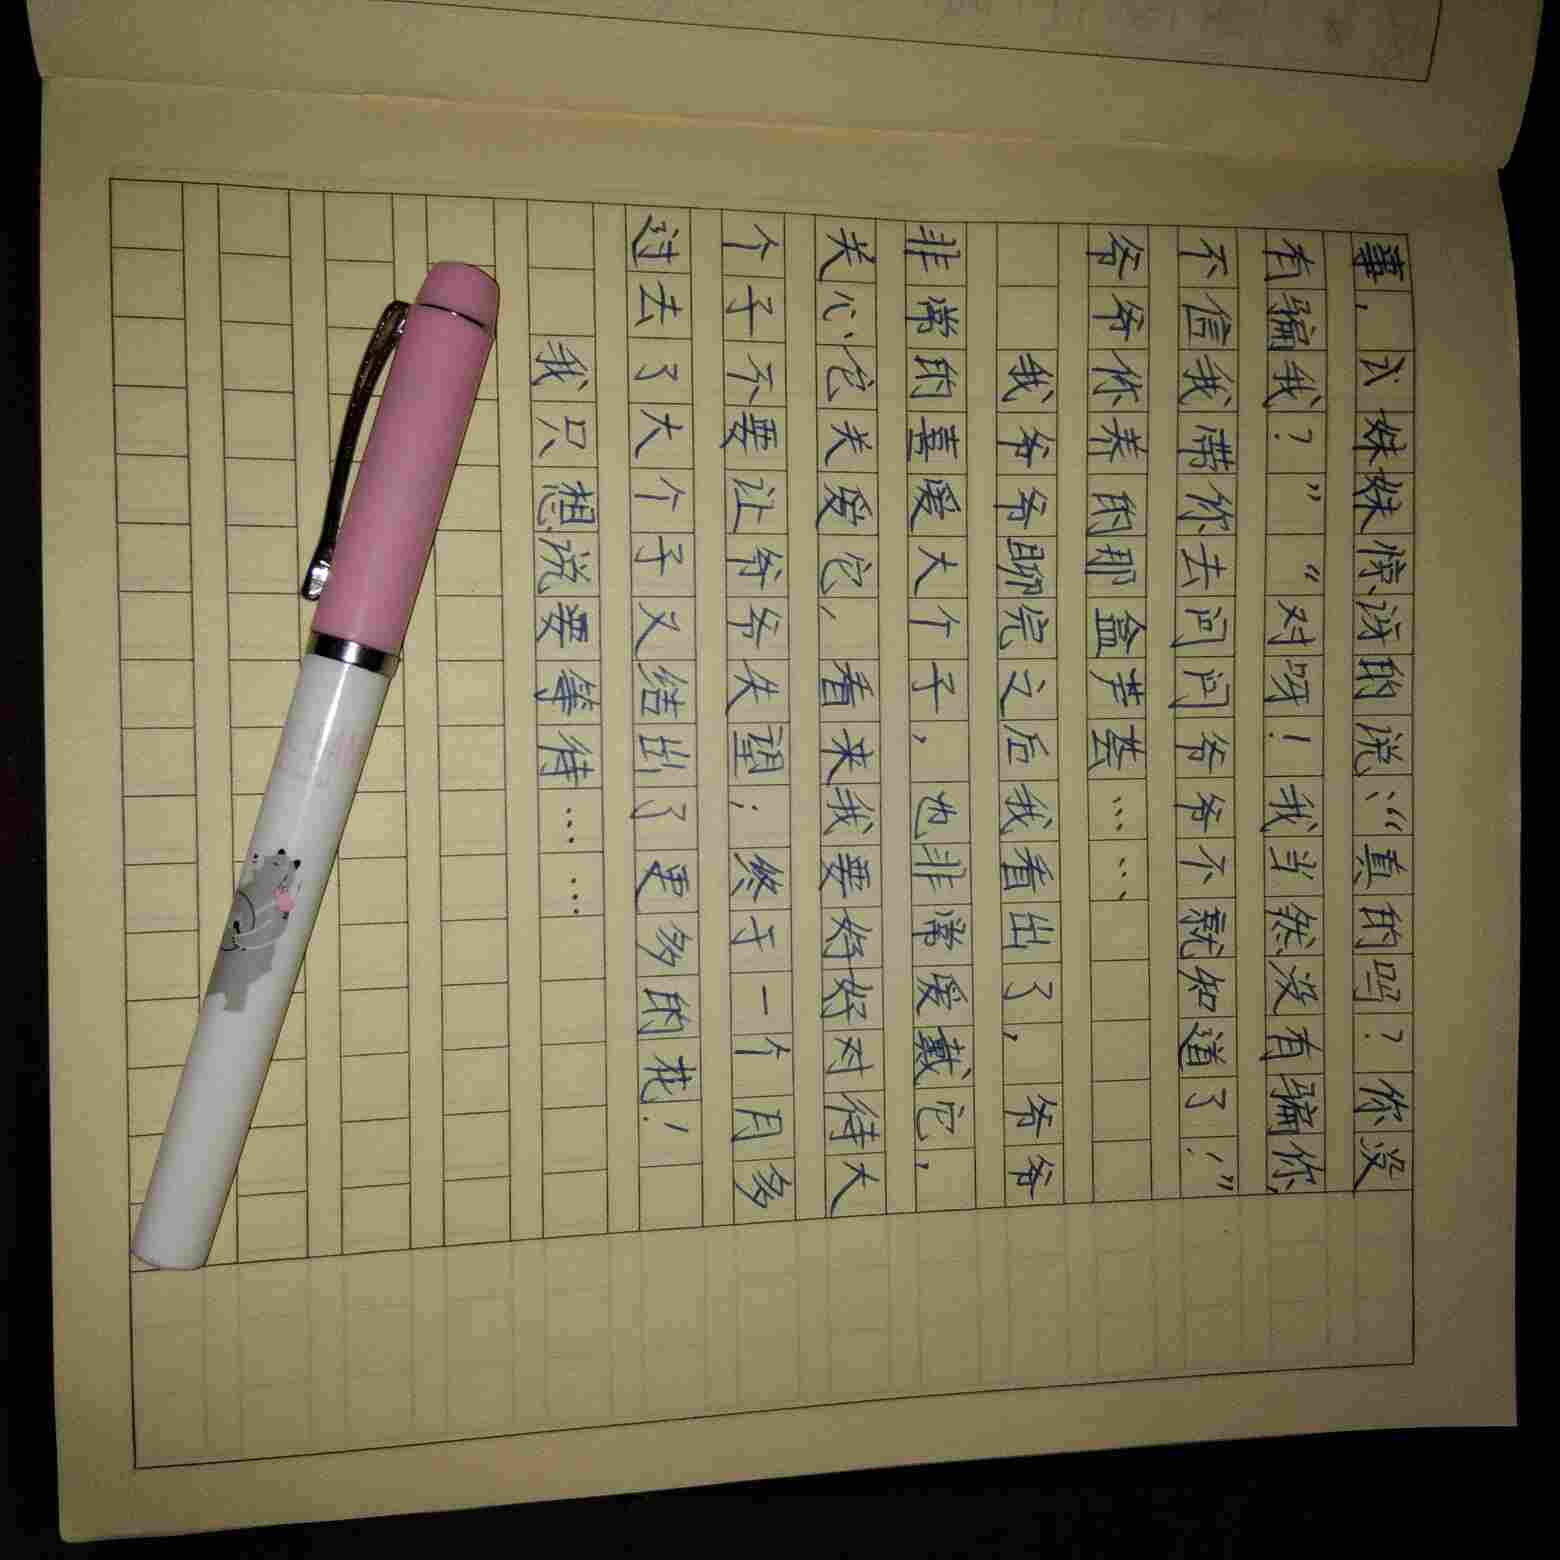 事，弍妹妹惊讶的说：“真的吗？你没
有骗我？”“对呀！我当然没有骗你，
不信我带你去问问爷爷不就知道了！”
爷爷你养的那盒芦荟……
我爷爷聊完之后我看出了，爷爷
非常的喜爱大个子，也非常爱戴它，
关心它关爱它，看来我要好好对待大
个子不要让爷爷失望；终于一个月多
过去了大个子又结出了更多的花！
我只想说要等待……